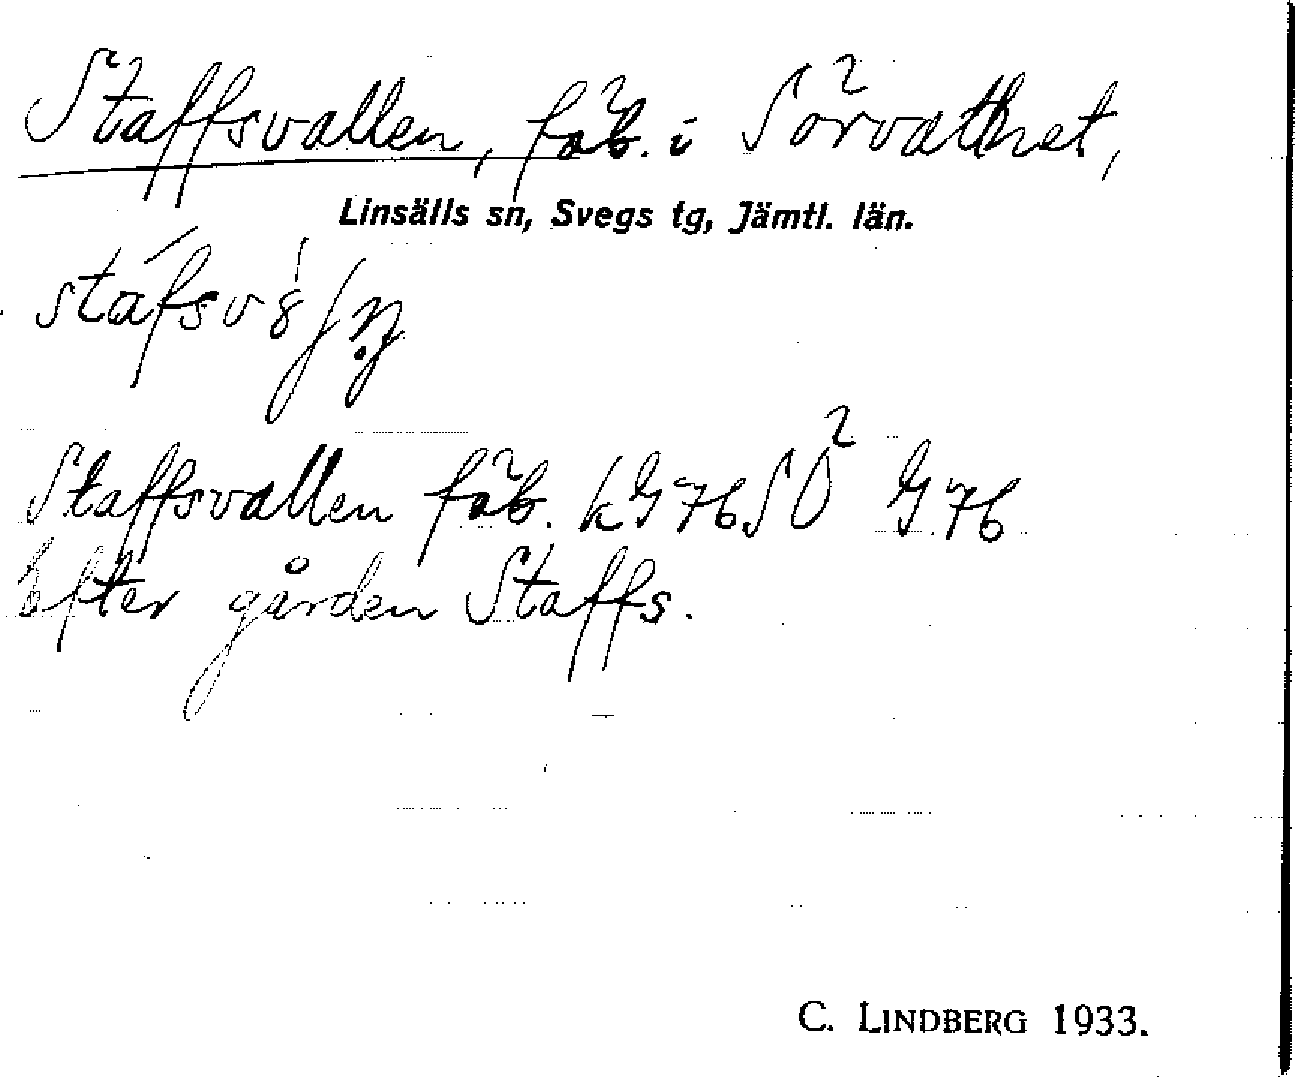 Staffsvallen, fäb. i Sörvattnet,
Linsälls sn, Svegs tg, Jämtl. län.
Staffsvallen fäb. kG7bSO G7b
Efter gården Staffs.
C. LINDBERG 1933.